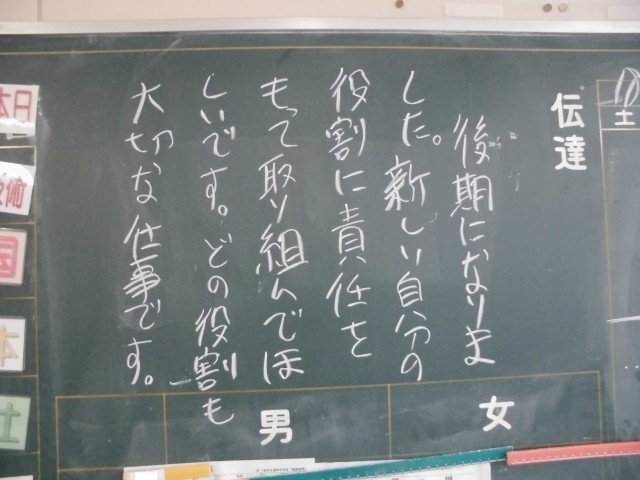 土
伝達
後期になりま
した。新しい自分の
役割に責任を
もって取り組んでほ
しいです。どの役割も
大切な仕事です。
女
男
日本
術
国
本
土